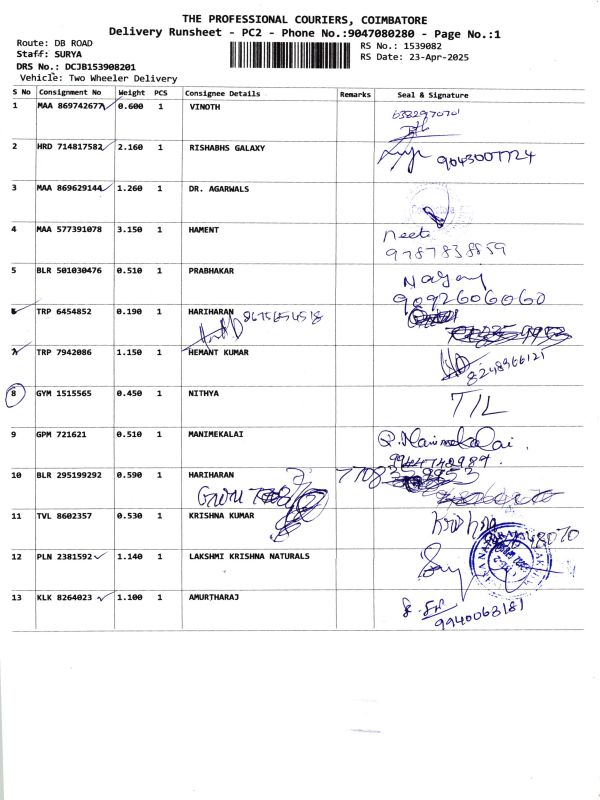 THE PROFESSIONAL COURIERS, COIMBATORE
Delivery Runsheet - PC2 - Phone No.:9047080280 - Page No.:1
Route: DB ROAD
Staff: SURYA
DRS No.: DCJB153908201
Vehicle: Two Wheeler Delivery
RS No.: 1539082
RS Date: 23-Apr-2025
S No Consignment No Weight PCS Consignee Details Remarks Seal & Signature
1 MAA 869742677 0.600 1 VINOTH
2 HRD 714817582 2.160 1 RISHABHS GALAXY 9043007724
3 MAA 869629144 1.260 1 DR. AGARWALS
4 MAA 577391078 3.150 1 HAMENT neet
9787838859
5 BLR 501030476 0.510 1 PRABHAKAR
9092606060
6 TRP 6454852 0.190 1 HARIHARAN
7 TRP 7942086 1.150 1 HEMANT KUMAR
8248966121
8 GYM 1515565 0.450 1 NITHYA T/L
9 GPM 721621 0.510 1 MANIMEKALAI R. Manimekalai.
10 BLR 295199292 0.590 1 HARIHARAN
11 TVL 8602357 0.530 1 KRISHNA KUMAR
12 PLN 2381592 1.140 1 LAKSHMI KRISHNA NATURALS
13 KLK 8264023 1.100 1 AMURTHARAJ
9940063181